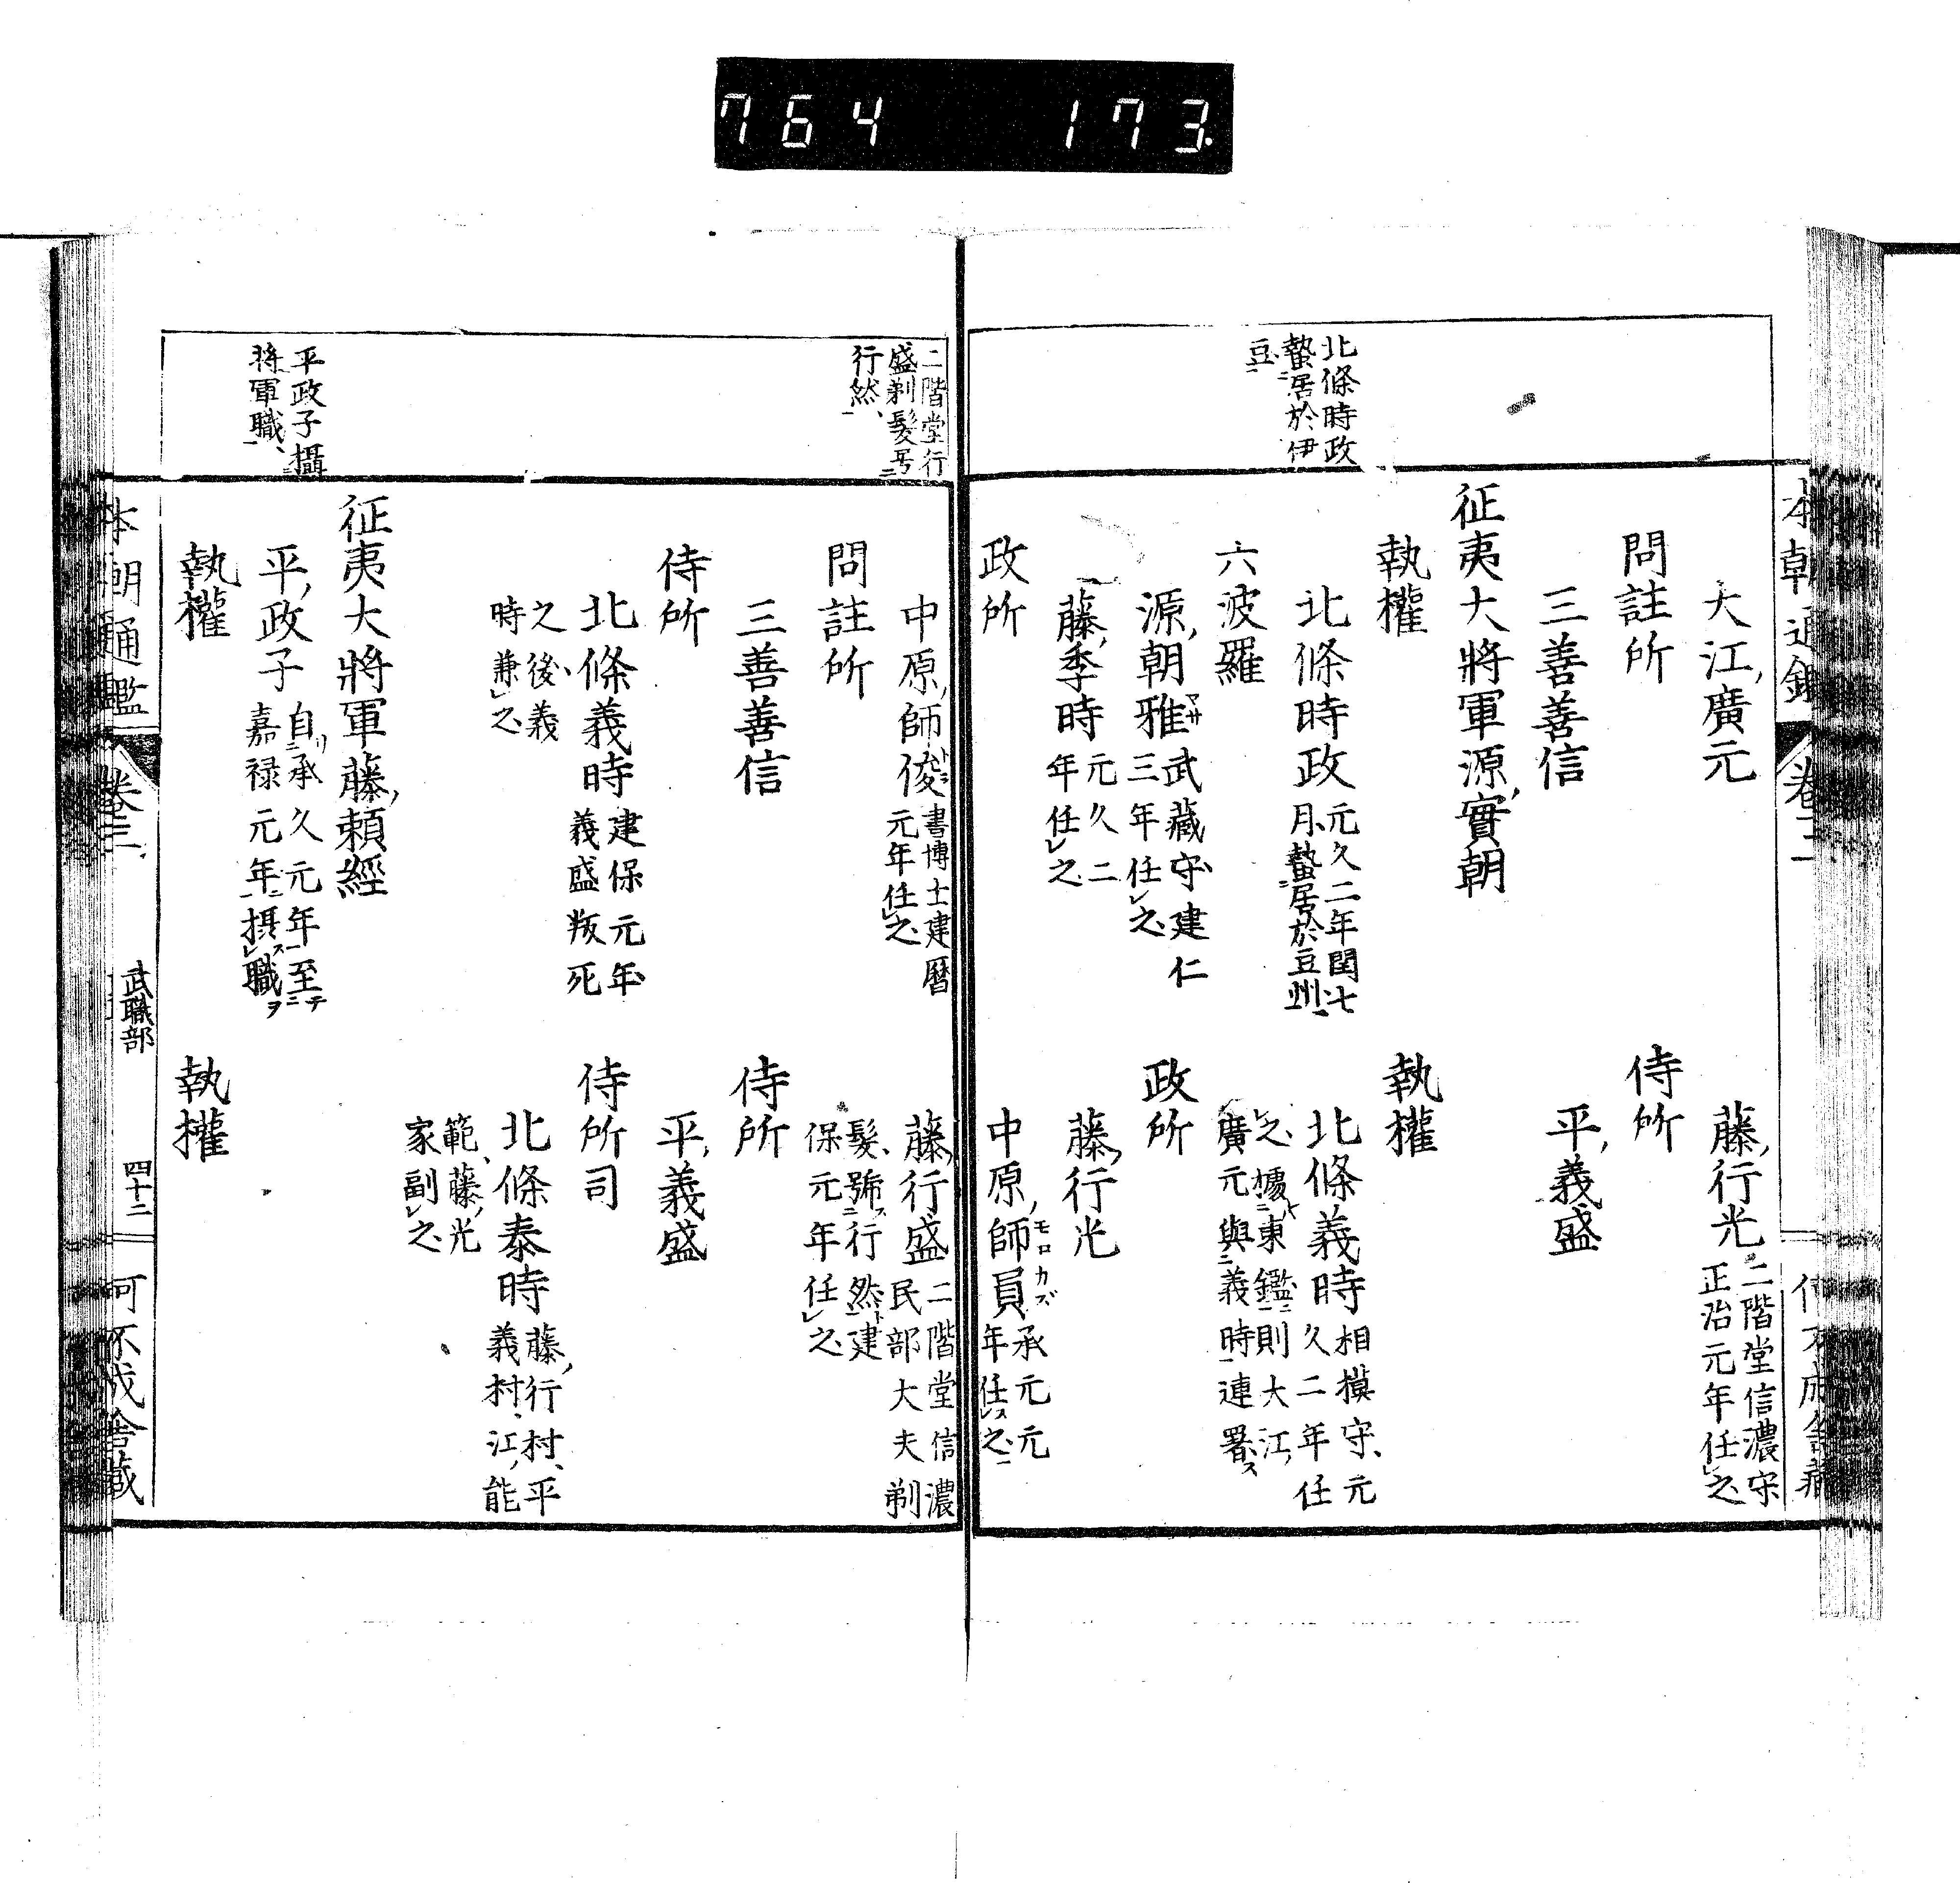 764 173
北條時政
蟄居於伊
豆
大江廣元
藤行光 二階堂信濃守
正治元年任之
問註所
侍所
三善善信
平義盛
征夷大將軍源實朝
執權
執權
北條時政 元久二年閏七
月蟄居於豆州
北條義時 相摸守元
久二年任
之據東鑑則大江
廣元與義時連署
六波羅
源朝雅 武藏守建仁
三年任之
政所
藤季時 元久二
年任之
藤行光
政所
中原師員 承元元
年任之
二階堂行
盛剃髮号
行然
中原師俊 書博士建曆
元年任之
藤行盛 二階堂信濃
民部大夫剃
髮號行然建
保元年任之
問註所
三善善信
侍所
平義盛
侍所
北條義時 建保元年
義盛叛死
之後義
時兼之
侍所司
北條泰時 藤行村平
義村江能
範藤光
家副之
平政子攝
將軍職
征夷大將軍藤賴經
平政子 自承久元年至
嘉禄元年摂職ヲ
執權
執權
本朝通鑑 卷三 武職部 四十二 可不成舎藏